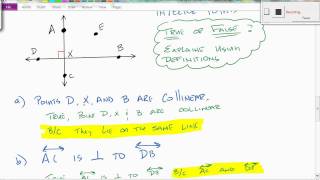 A
E
D
X
B
C
TRUE OR FALSE?
EXPLAIN USING
DEFINITIONS
a) POINTS D, X, AND B ARE COLLINEAR.
TRUE, POINT D, X & B ARE COLLINEAR
B/C THEY LIE ON THE SAME LINE.
b) AC IS ⊥ TO DB
AC IS ⊥ TO DB B/C AC AND DB